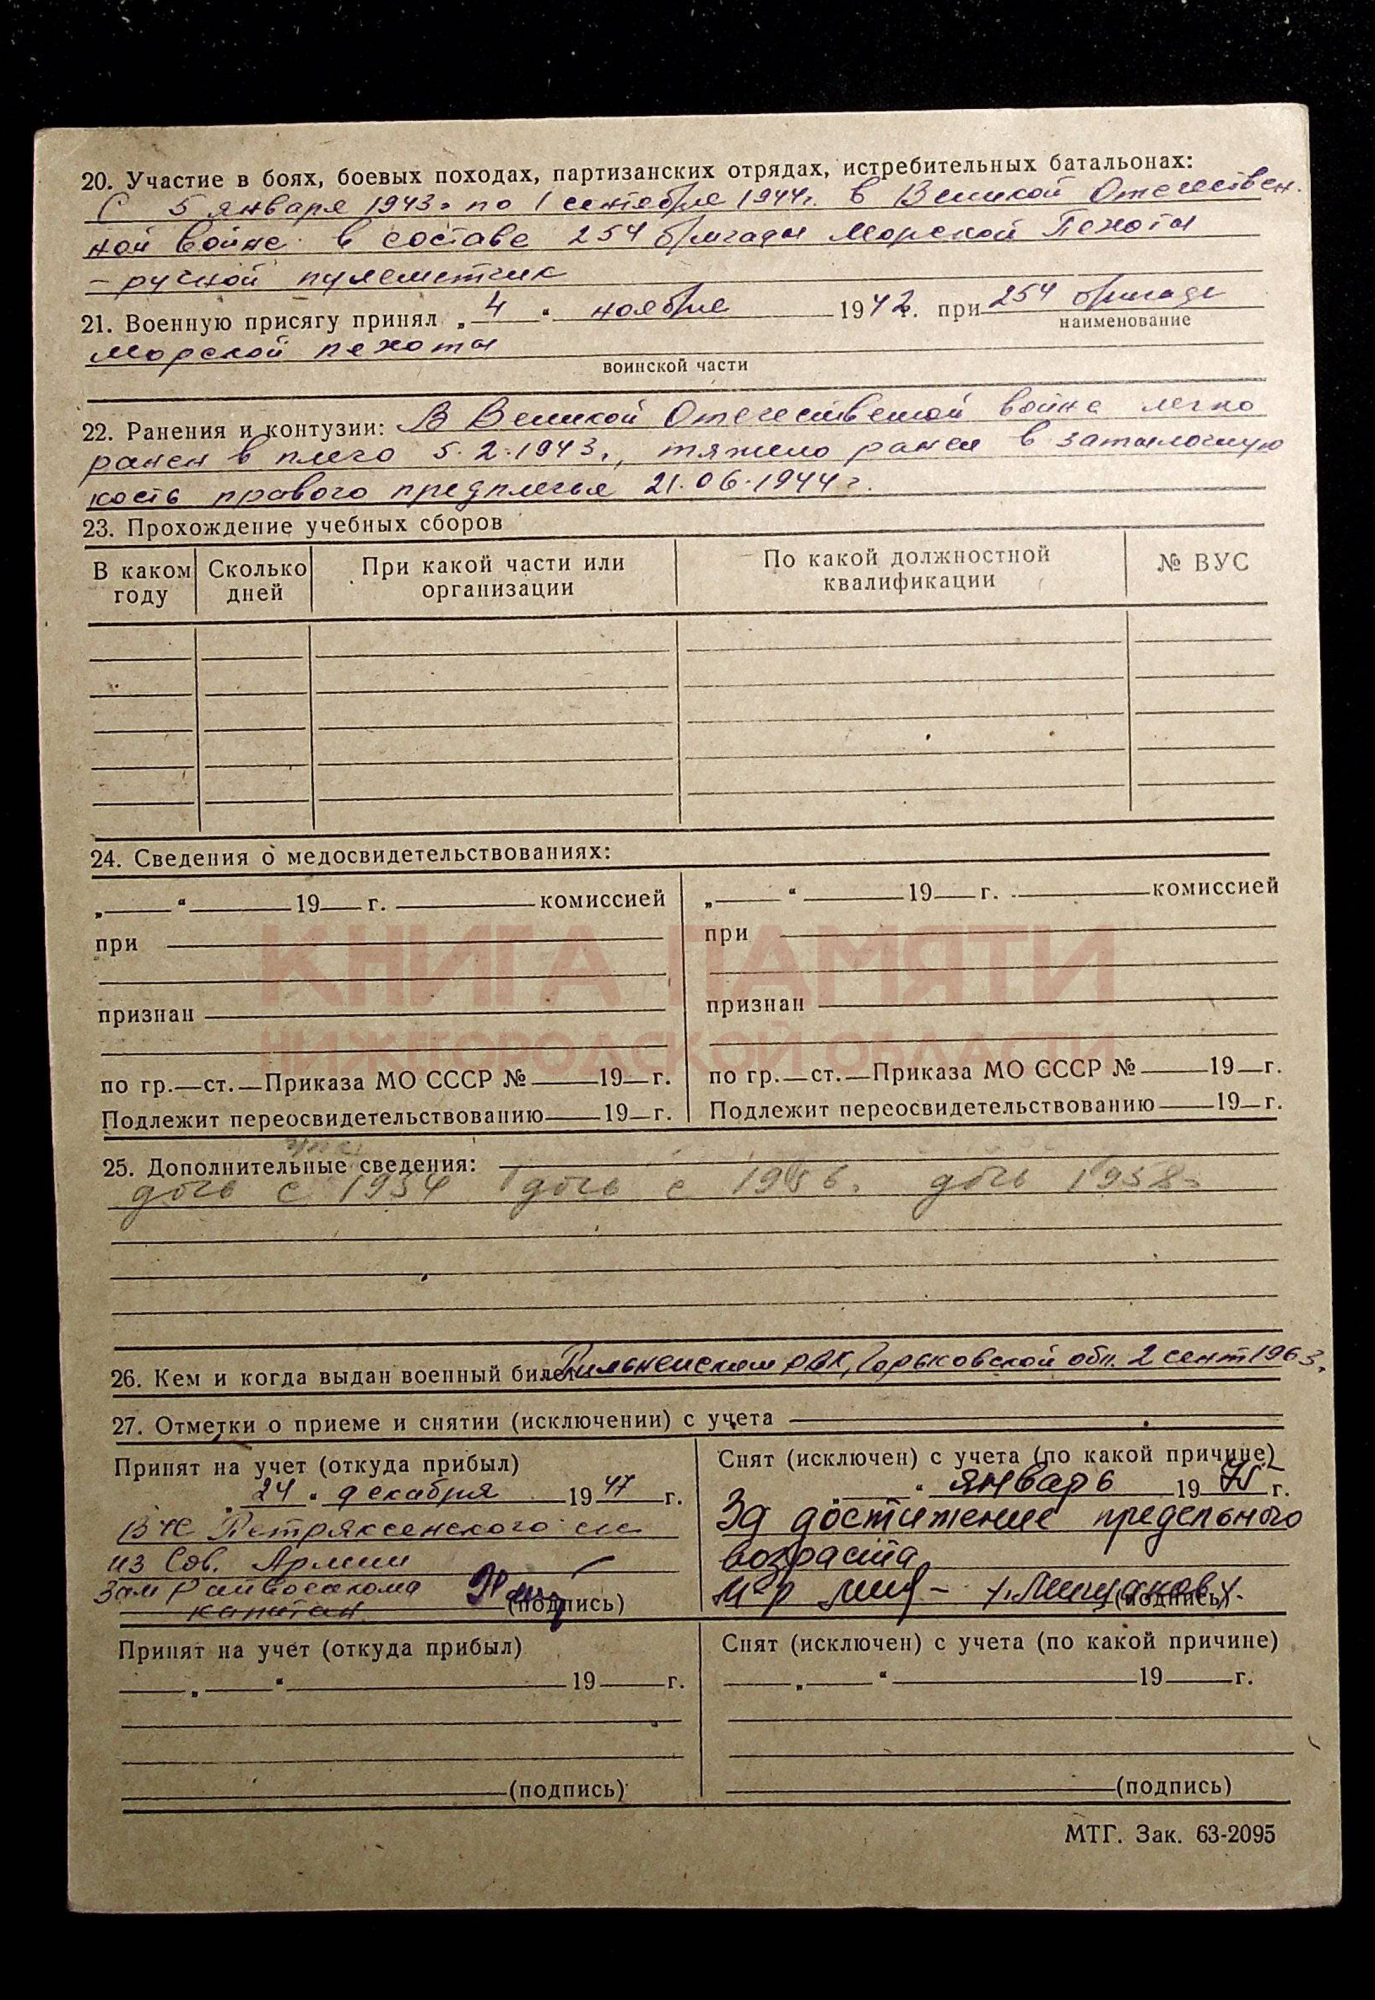 20. Участие в боях, боевых походах, партизанских отрядах, истребительных батальонах:
С 5 января 1943г по 1 сентября 1944г. в Великой Отечествен.
ной войне в составе 254 бригады Морской Пехоты
– ручной пулеметчик
21. Военную присягу принял „ 4 “ ноября 1942 г. при 254 бригаде
наименование
Морской пехоты
воинской части
22. Ранения и контузии: В Великой Отечественной войне легко
ранен в плечо 5.2.1943г, тяжело ранен в затылочную
кость правого предплечья 21.06.1944г.
23. Прохождение учебных сборов
В каком году Сколько дней При какой части или организации По какой должностной квалификации № ВУС
24. Сведения о медосвидетельствованиях:
„ “ 19 г. комиссией „ “ 19 г. комиссией
при при
КНИГА ПАМЯТИ
признан признан
НИЖЕГОРОДСКОЙ ОБЛАСТИ
по гр. ст. Приказа МО СССР № 19 г. по гр. ст. Приказа МО СССР № 19 г.
Подлежит переосвидетельствованию 19 г. Подлежит переосвидетельствованию 19 г.
25. Дополнительные сведения:
дочь с 1954 дочь с 1956. дочь 1958.
26. Кем и когда выдан военный билет Пильненским РВК, Горьковской обл. 2 сент 1963.
27. Отметки о приеме и снятии (исключении) с учета
Принят на учет (откуда прибыл) Снят (исключен) с учета (по какой причине)
„ 24 “ декабря 1947 г. „ “ январь 1975 г.
Петряксенского За достижение предельного
из Сов. Армии возраста
Зам Райвоенкома м-р
капитан (подпись) (подпись)
Принят на учет (откуда прибыл) Снят (исключен) с учета (по какой причине)
„ “ 19 г. „ “ 19 г.
(подпись) (подпись)
МТГ. Зак. 63-2095